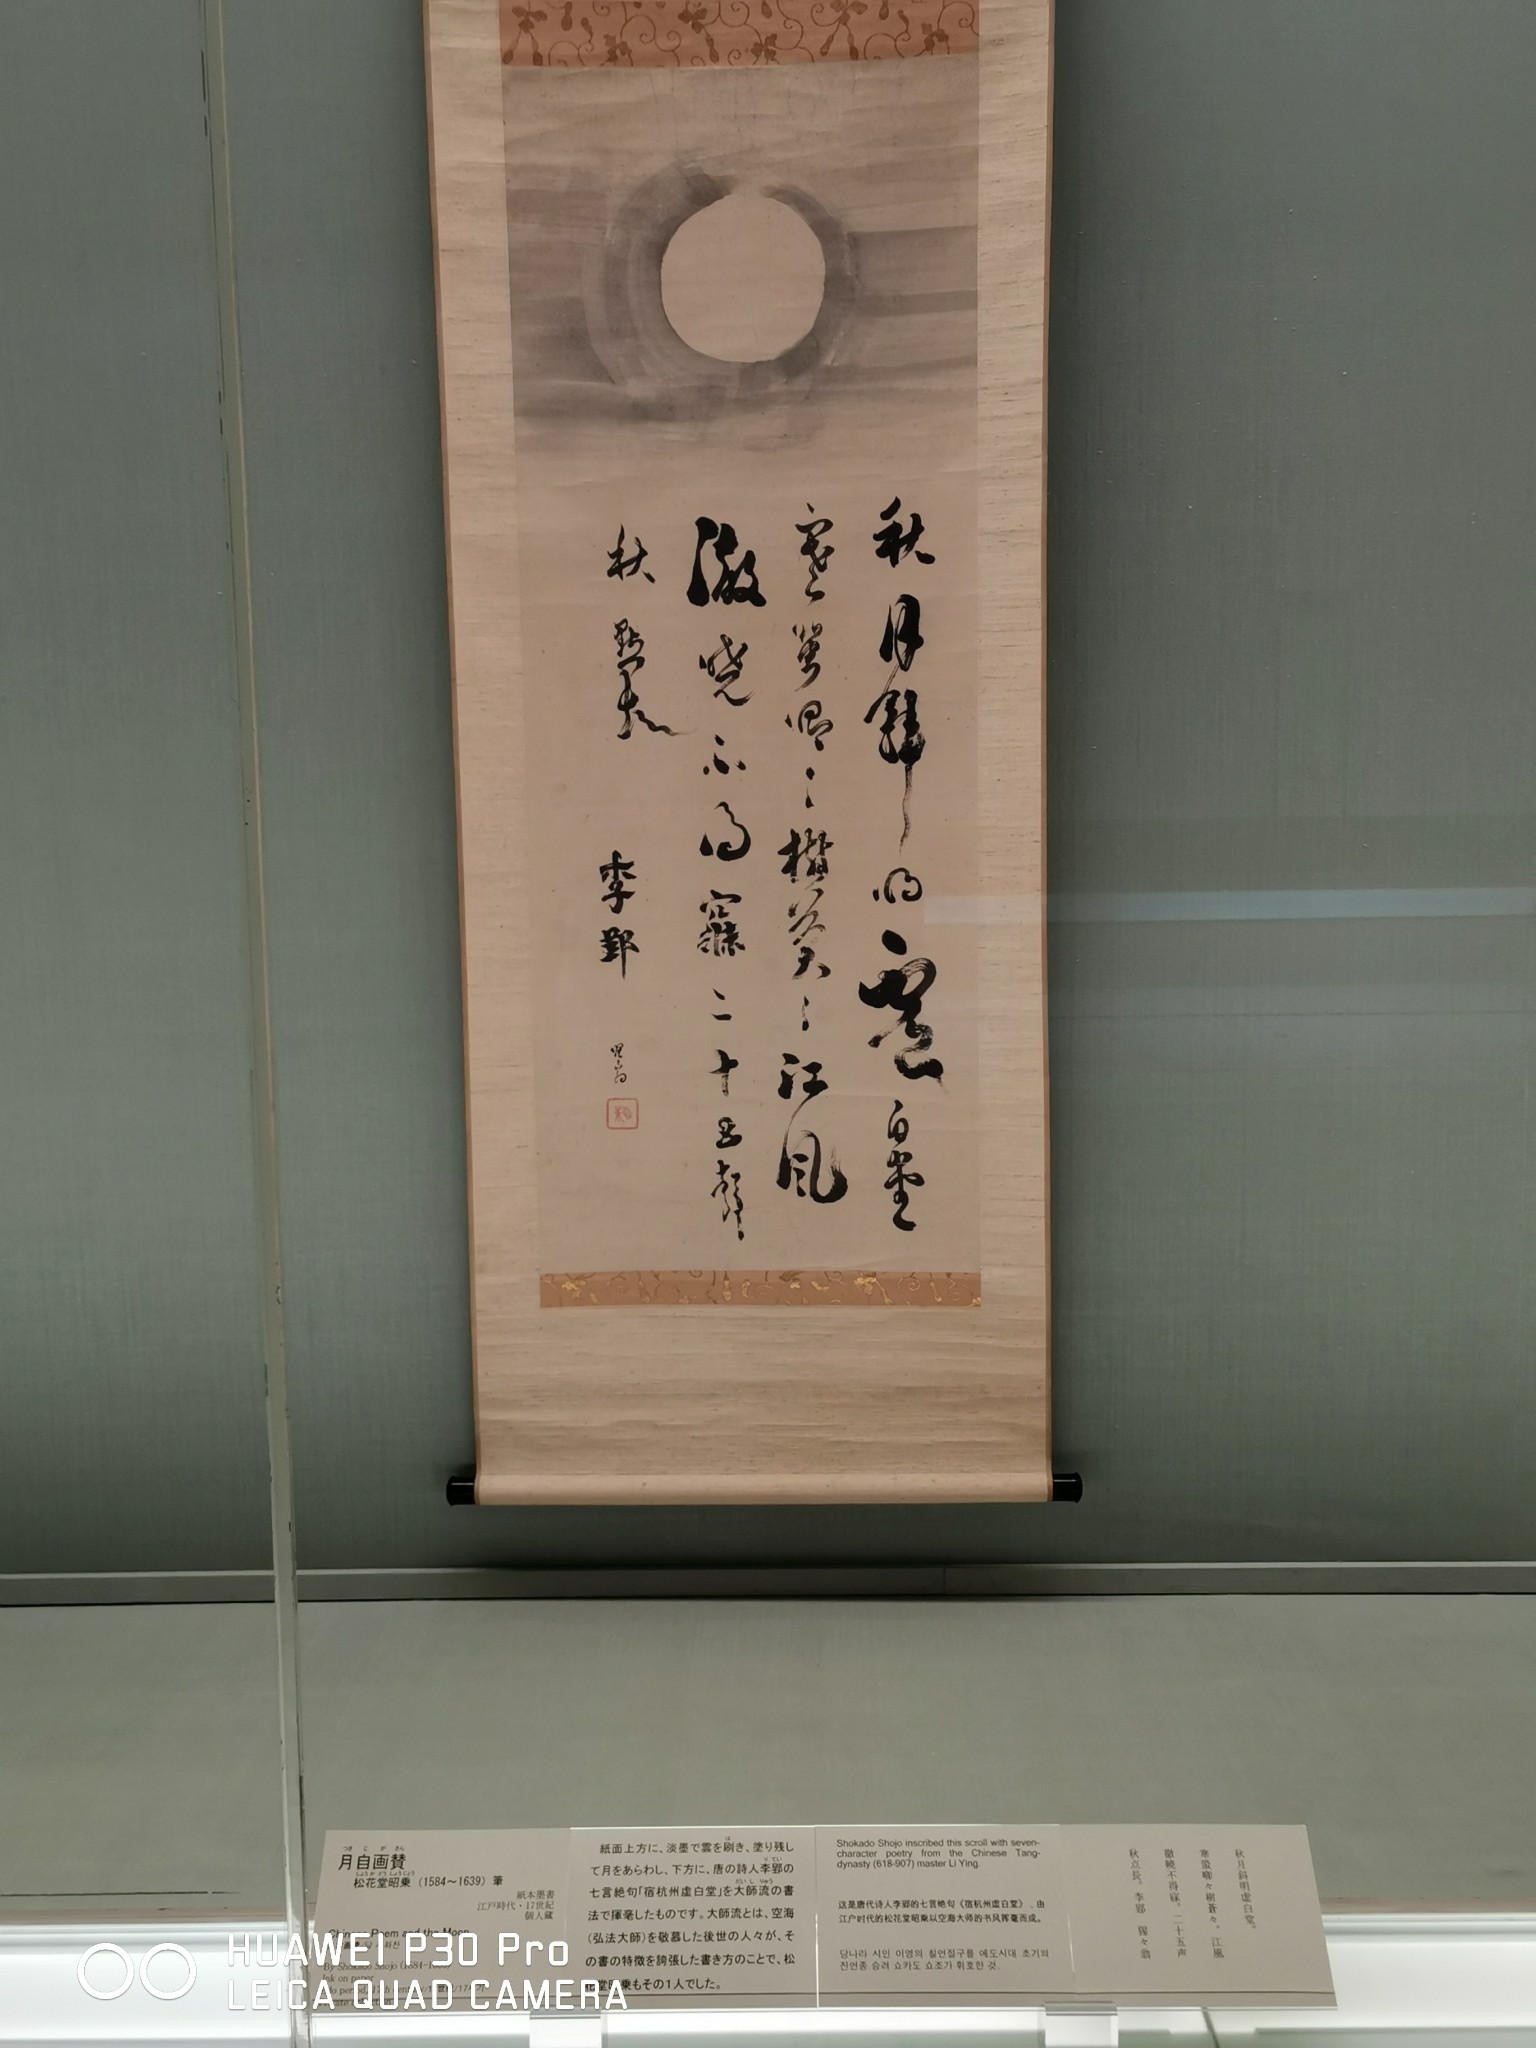 秋月斜明虚白堂
寒蛩喞々樹蒼々江風
徹暁不得寐二十五聲
秋點長
李郢
猩々翁
つきじがさん
月自画賛
しょうかどうしょうじょう
松花堂昭乗(1584~1639)筆
紙本墨書
江戸時代・17世紀
個人蔵
Chinese Poem and the Moon
By Shokado Shojo (1584-
Ink on paper
紙面上方に、淡墨で雲を刷き、塗り残し
て月をあらわし、下方に、唐の詩人李郢の
七言絶句「宿杭州虚白堂」を大師流の書
法で揮毫したものです。大師流とは、空海
(弘法大師)を敬慕した後世の人々が、そ
の書の特徴を誇張した書き方のことで、松
花堂昭乗もその1人でした。
Shokado Shojo inscribed this scroll with seven-
character poetry from the Chinese Tang-
dynasty (618-907) master Li Ying.
这是唐代诗人李郢的七言绝句《宿杭州虚白堂》,由
江户时代的松花堂昭乘以空海大师的书风挥毫而成。
당나라 시인 이영의 칠언절구를 에도시대 초기의
진언종 승려 쇼카도 쇼조가 휘호한 것.
秋月斜明虚白堂。
寒蛩喞々樹蒼々。江風
徹曉不得寐。二十五声
秋点長。李郢 猩々翁
HUAWEI P30 Pro
LEICA QUAD CAMERA